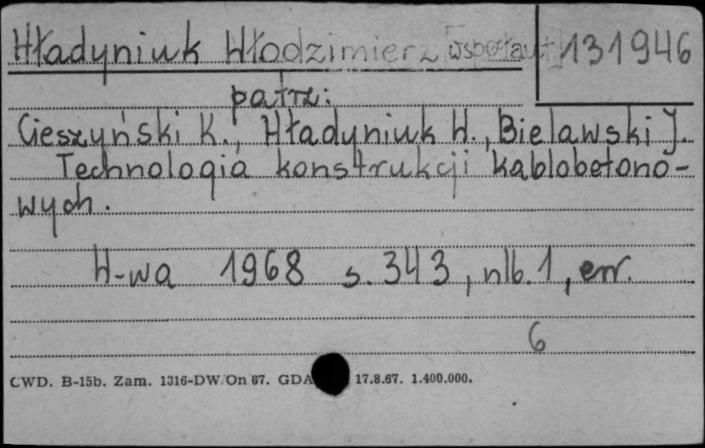 Hładyniuk Włodzimierz [współaut.] 131946
patrz:
Cieszyński K., Hładyniuk W., Bielawski J.
Technologia konstrukcji kablobetono-
wych.
W-wa 1968 s. 343, nlb. 1, err.
6
CWD. B-15b. Zam. 1316-DW/On 67. GDA 17.8.67. 1.400.000.